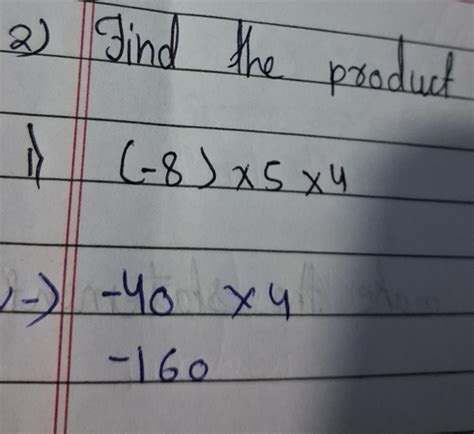 2) Find the product
i) (-8) × 5 × 4
→ -40 × 4
-160